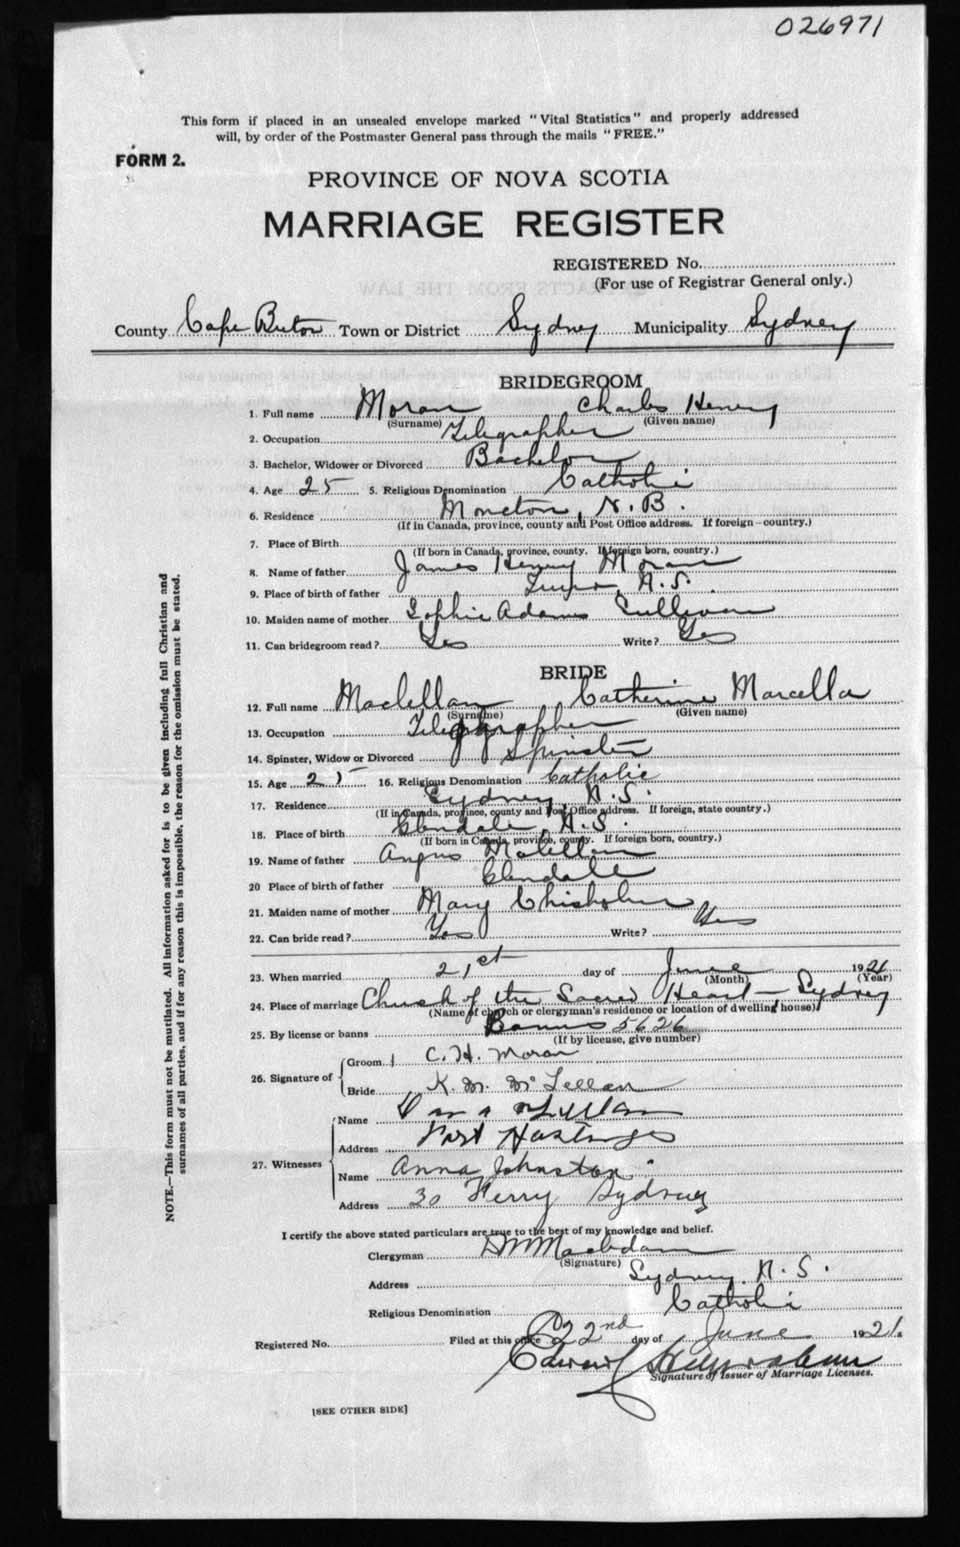 026971
This form if placed in an unsealed envelope marked "Vital Statistics" and properly addressed
will, by order of the Postmaster General pass through the mails "FREE."
FORM 2.
PROVINCE OF NOVA SCOTIA
MARRIAGE REGISTER
REGISTERED No.
(For use of Registrar General only.)
County Cape Breton Town or District Sydney Municipality Sydney
BRIDEGROOM
1. Full name Moran Charles Henry
(Surname) (Given name)
2. Occupation Telegrapher
3. Bachelor, Widower or Divorced Bachelor
4. Age 25 5. Religious Denomination Catholic
6. Residence Moncton, N.B.
(If in Canada, province, county and Post Office address. If foreign—country.)
7. Place of Birth
(If born in Canada, province, county. If foreign born, country.)
8. Name of father James Henry Moran
9. Place of birth of father N.S.
10. Maiden name of mother Sophie Adams Sullivan
11. Can bridegroom read? Yes Write? Yes
BRIDE
12. Full name Maclellan Catherine Marcella
(Surname) (Given name)
13. Occupation Telegrapher
14. Spinster, Widow or Divorced Spinster
15. Age 25 16. Religious Denomination Catholic
17. Residence Sydney, N.S.
(If in Canada, province, county and Post Office address. If foreign, state country.)
18. Place of birth Glendale N.S.
(If born in Canada, province, county. If foreign born, country.)
19. Name of father Angus Maclellan
20 Place of birth of father Glendale
21. Maiden name of mother Mary Chisholm
22. Can bride read? Yes Write? Yes
23. When married 21st day of June 1921
(Month) (Year)
24. Place of marriage Church of the Sacred Heart – Sydney
(Name of church or clergyman's residence or location of dwelling house)
25. By license or banns Banns 5626
(If by license, give number)
26. Signature of
Groom C. H. Moran
Bride K. M. McLellan
27. Witnesses
Name
Address Port Hastings
Name Anna Johnston
Address 30 Ferry Sydney
I certify the above stated particulars are true to the best of my knowledge and belief.
Clergyman
(Signature)
Address Sydney N.S.
Religious Denomination Catholic
Registered No. Filed at this office 22nd day of June 1921.
Edward
Signature of Issuer of Marriage Licenses.
[SEE OTHER SIDE]
NOTE.—This form must not be mutilated. All information asked for is to be given including full Christian and
surnames of all parties, and if for any reason this is impossible, the reason for the omission must be stated.